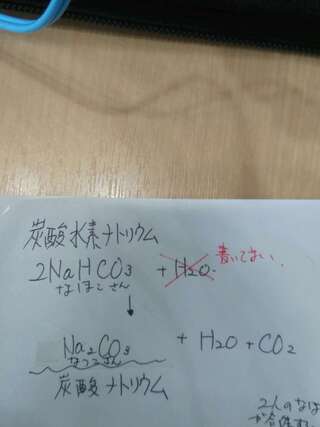 炭酸水素ナトリウム
2NaHCO3 +H2O 書いてない、
なほこさん
↓
Na2CO3 + H2O + CO2
なつこさん
炭酸ナトリウム
2人のなほ